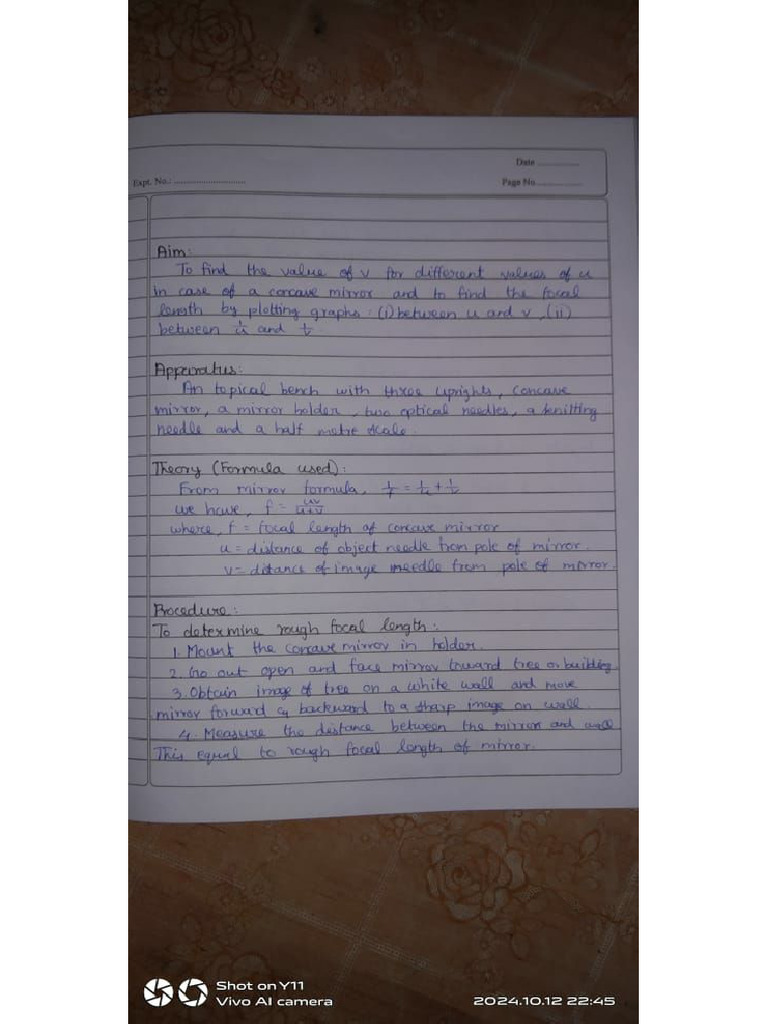 Date ............
Expt. No.: ........................
Page No. ............
Aim:
To find the value of v for different values of u
in case of a concave mirror and to find the focal
length by plotting graphs: (i) between u and v, (ii)
between 1/u and 1/v
Apparatus:
An toptical bench with three uprights, concave
mirror, a mirror holder, two optical needles, a knitting
needle and a half metre scale.
Theory (Formula used):
From mirror formula, 1/f = 1/u + 1/v
we have, f = uv/u+v
where, f = focal length of concave mirror
u = distance of object needle from pole of mirror.
v = distance of image needle from pole of mirror.
Procedure:
To determine rough focal length:
1. Mount the concave mirror in holder.
2. Go out open and face mirror toward tree or building
3. Obtain image of tree on a white wall and move
mirror forward backward to a sharp image on wall.
4. Measure the distance between the mirror and wall
This equal to rough focal length of mirror.
Shot on Y11
Vivo AI camera
2024.10.12 22:45